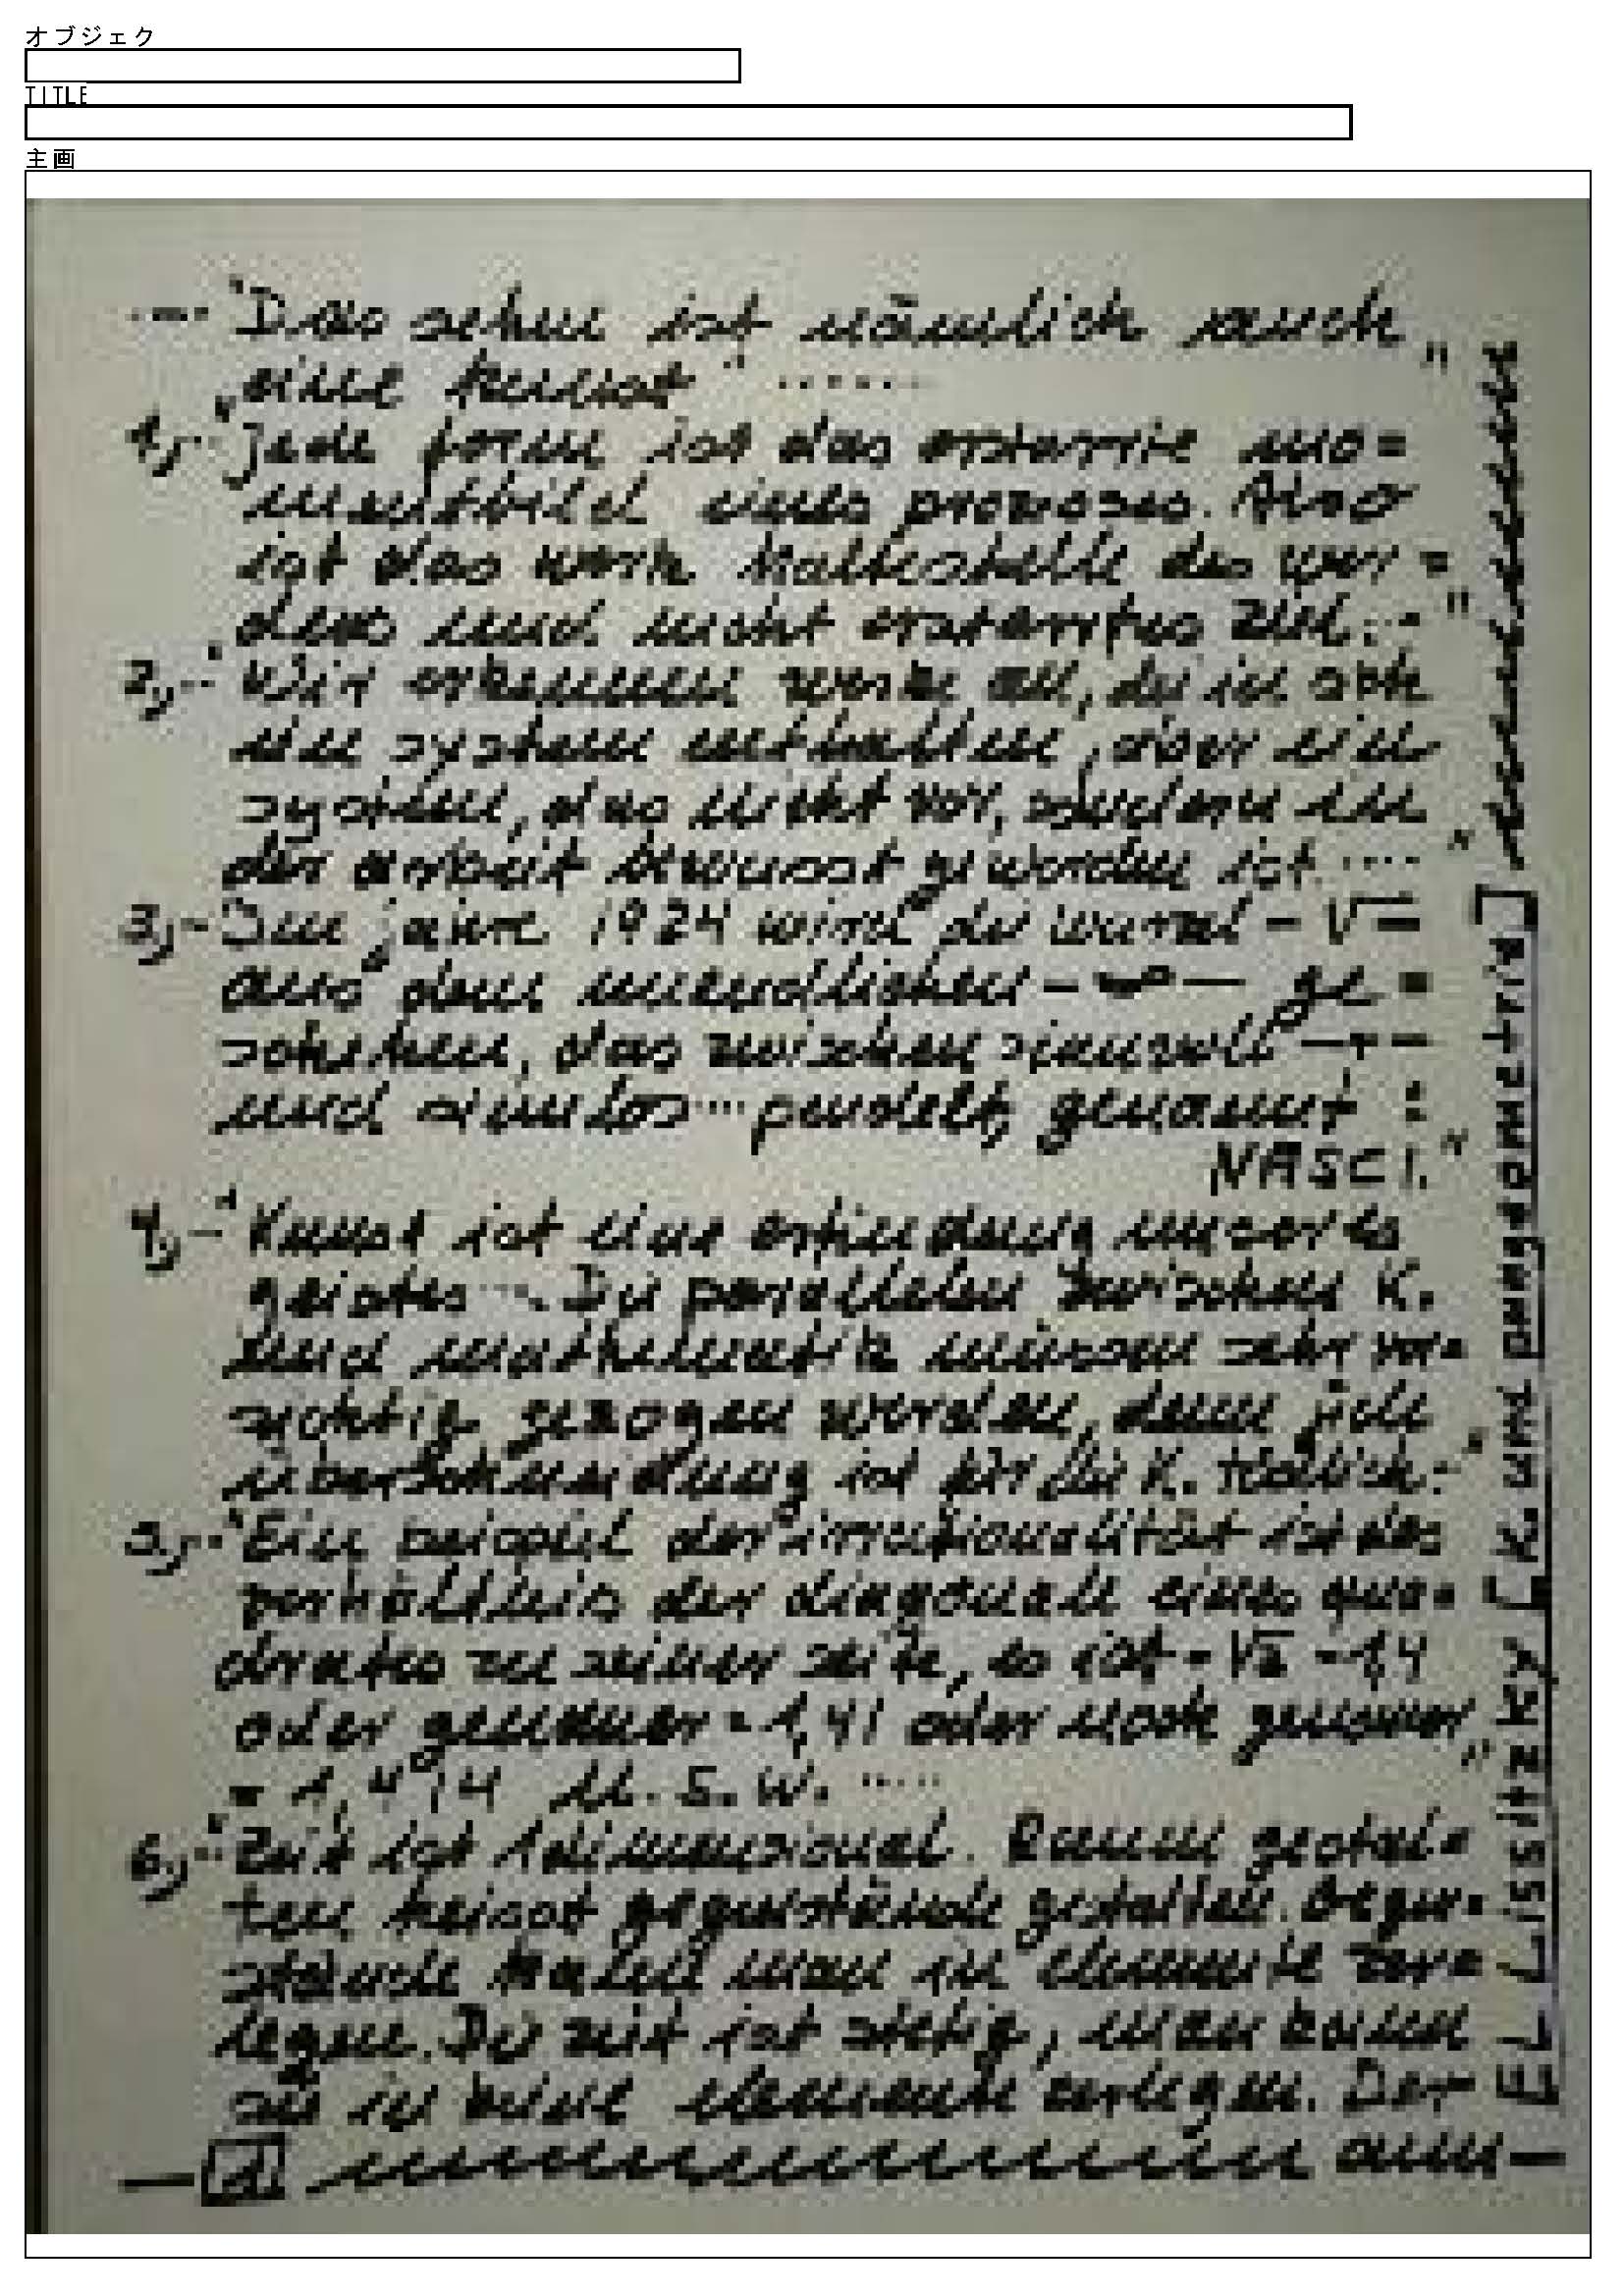 オブジェク
TITLE
主画
--- "Das sehen ist nämlich auch
eine kunst" ......."
1,-- "Jede form ist das erstarrte mo=
mentbild eines prozesses. Also
ist das werk haltestelle des wer=
dens und nicht erstarrtes ziel.--"
2,--" Wir erkennen werke an, die in sich
ein system enthalten, aber ein
system, das nicht vor, sondern in
der arbeit bewusst geworden ist ...."
3,-- Im jahre 1924 wird die wurzel - √ -
aus dem unendlichen - ∞ - ge=
schehen, das zwischen sinnvoll - + -
und sinnlos --- pendelt, genannt :
NASCI."
4,-" Kunst ist eine erfindung unseres
geistes ... Die parallelen zwischen K.
und mathematik müssen sehr vor=
sichtig gezogen werden, denn jede
überschneidung ist für die K. tödlich.-"
5,-- "Ein beispiel der irrationalität ist das
verhältnis der diagonale eines qua=
drates zu seiner seite, es ist = √2 = 1,4
oder genauer = 1,41 oder noch genauer
= 1,414 u. s. w. ....."
6,-- "Zeit ist 1dimensional. Raum gestal=
ten heisst gegenstände gestalten. Gegen=
stände kann man in elemente zer=
legen. Die zeit ist stetig, man kann
sie in keine elemente zerlegen. Der
raum
EL Lissitzky [K. und pangeometrie]